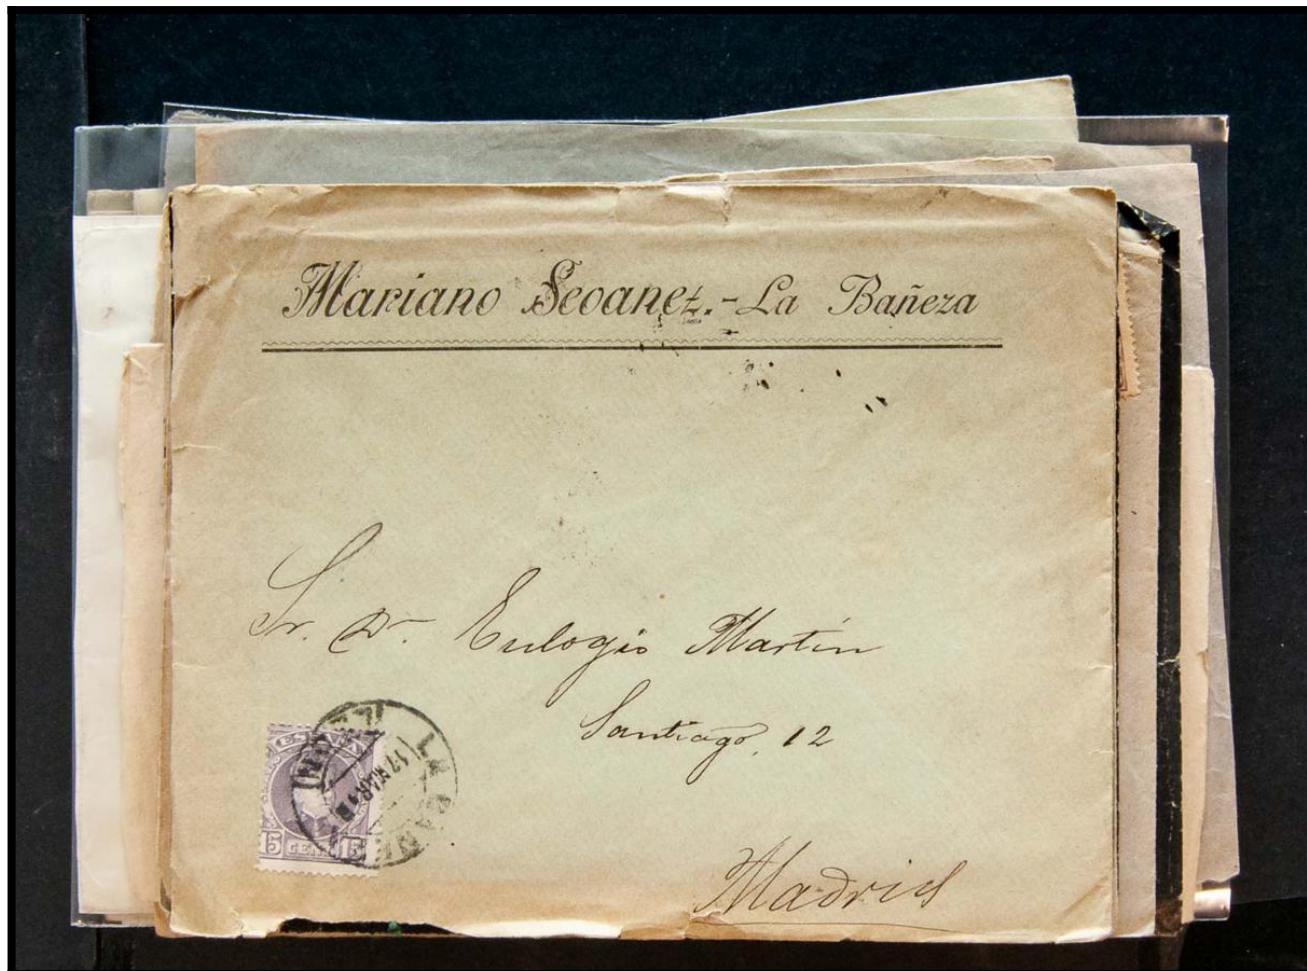 Mariano Seoanez.-La Bañeza
Sr. Dn. Eulogio Martín
Santiago, 12
Madrid
ESPAÑA
15 CENT. 15
LA BAÑEZA
17 MAR